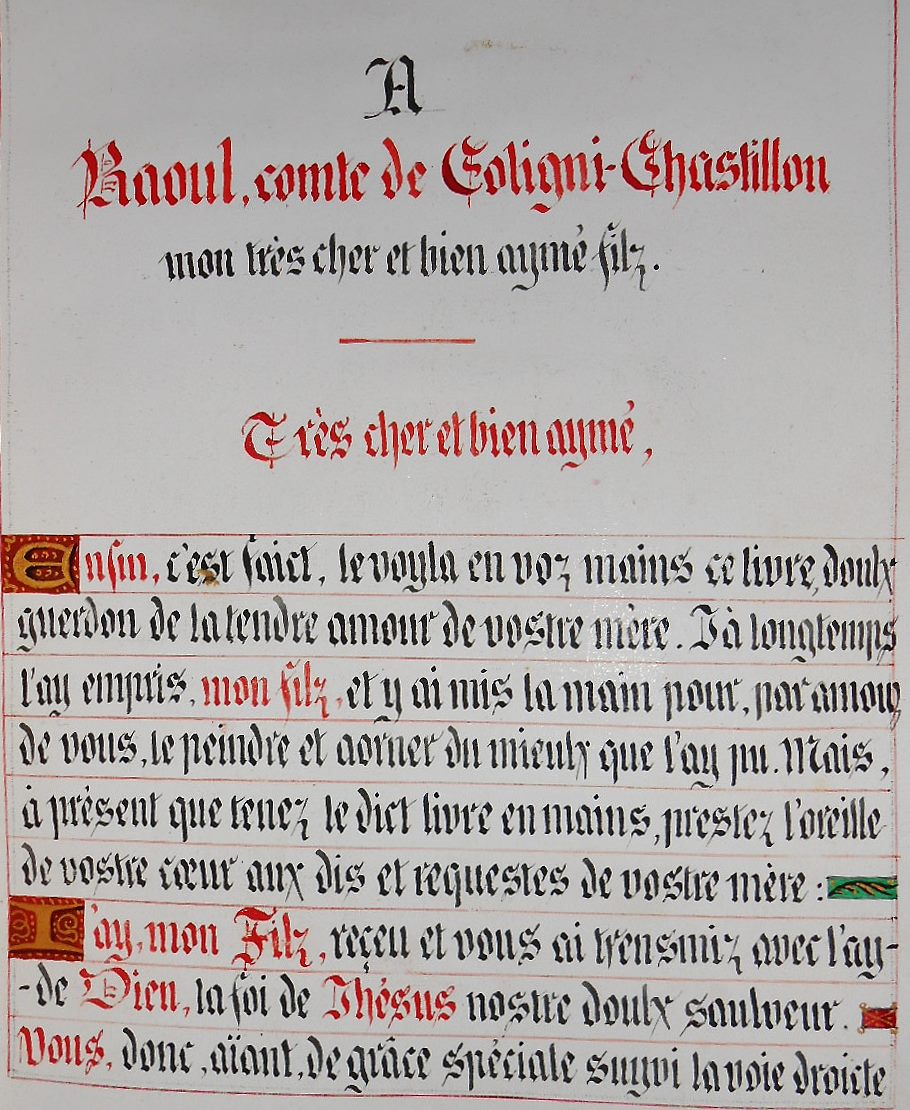 A
Raoul, comte de Coligni-Chastillon
mon très cher et bien aymé filz.
Très cher et bien aymé,
Enfin, c'est faict, le voyla en voz mains ce livre, doulx
guerdon de la tendre amour de vostre mère. Jà longtemps
l'ay empris, mon filz, et y ai mis la main pour, par amour
de vous, le peindre et aorner du mieulx que l'ay pu. Mais,
à présent que tenez le dict livre en mains, prestez l'oreille
de vostre cœur aux dis et requestes de vostre mère :
J'ay, mon Filz, reçeu et vous ai trensmiz avec l'ay-
-de Dieu, la foi de Jhésus nostre doulx saulveur.
Vous, donc, aïant, de grâce spéciale suyvi la voie droicte